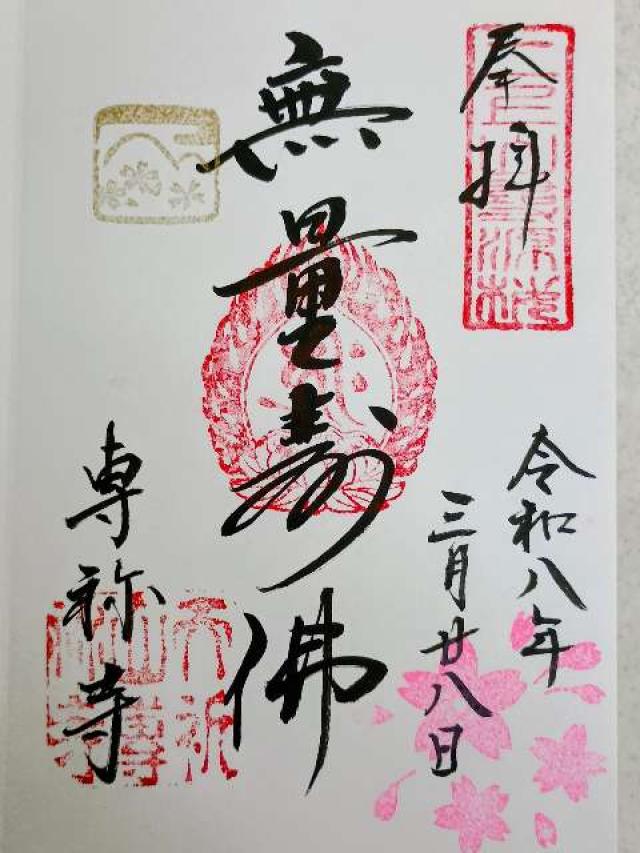 奉拝
令和八年
三月廿八日
無量寿佛
専祢寺